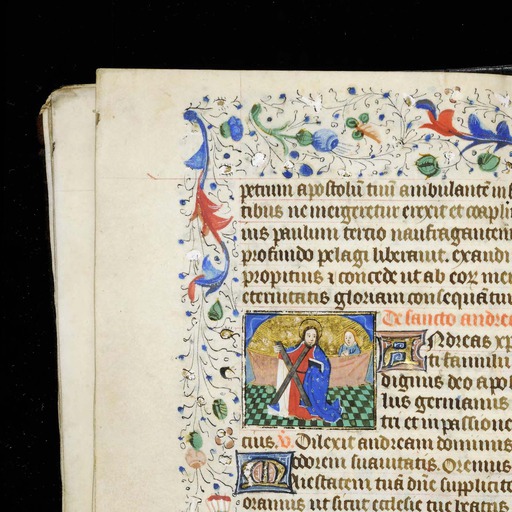 petrum apostolū tuū ambulantē in f
tibus ne mergeretur erexit et coapl
us paulum tertio naufragantem
profundo pelagi liberauit. exaudi
propitius ⁊ concede ut ab eoꝝ mer
eternitatis gloriam consequātur
De sancto andree
Andreas xp
ti famulus
dignus deo apo
lus germanus
tri et in passione
cius. V. Dilexit andream dominus
odorem suauitatis. Oremus
Maiestatem tuā dn̄e supplicite
oramus ut sicut ecclesie tue beatus